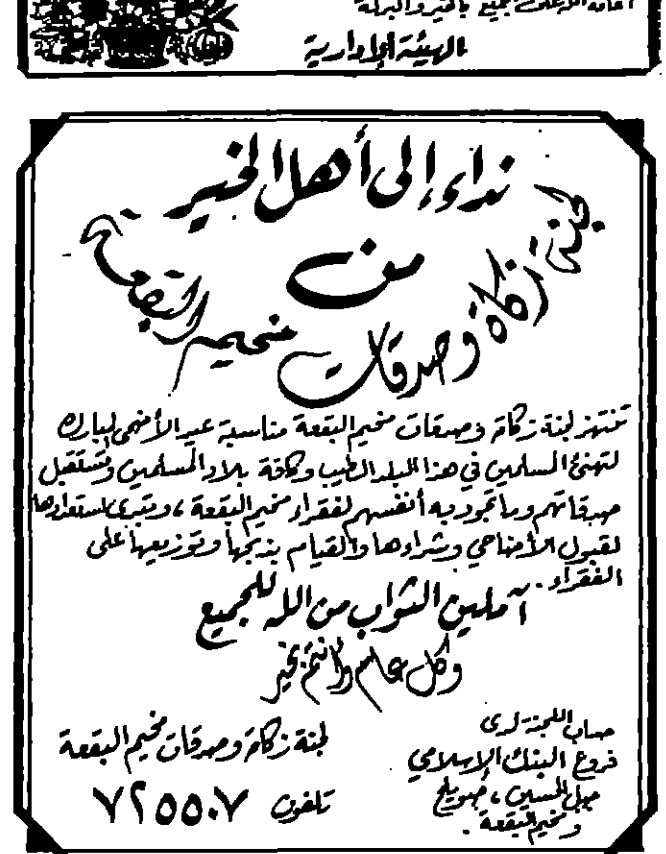 أعاده الله على الجميع بالخير والبركة
الهيئة الإدارية
نداء إلى أهل الخير
من
لجنة زكاة وصدقات مخيم البقعة
تنتهز لجنة زكاة وصدقات مخيم البقعة مناسبة عيد الأضحى المبارك
لتهنئ المسلمين في هذا البلد الطيب وكافة بلاد المسلمين وتستقبل
صدقاتهم وما تجود به أنفسهم لفقراء مخيم البقعة، وتبدي استعدادها
لقبول الأضاحي وشراءها والقيام بذبحها وتوزيعها على
الفقراء.
آملين الثواب من الله للجميع
وكل عام وأنتم بخير
لجنة زكاة وصدقات مخيم البقعة
تلفون ٧٢٥٥٠٧
حساب اللجنة لدى
فروع البنك الإسلامي
جبل الحسين، صويلح
ومخيم البقعة.